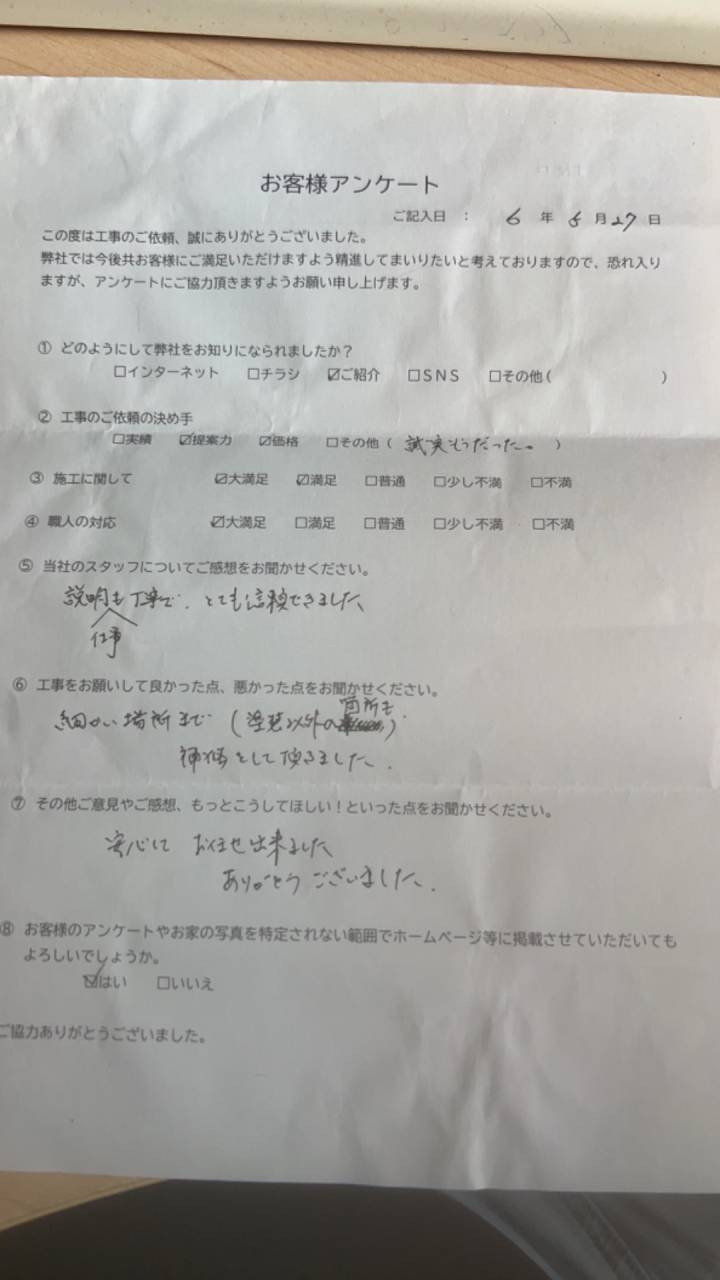 お客様アンケート
ご記入日 : 6 年 5 月 27 日
この度は工事のご依頼、誠にありがとうございました。
弊社では今後共お客様にご満足いただけますよう精進してまいりたいと考えておりますので、恐れ入り
ますが、アンケートにご協力頂きますようお願い申し上げます。
① どのようにして弊社をお知りになられましたか？
□インターネット □チラシ ☑ご紹介 □ＳＮＳ □その他( )
② 工事のご依頼の決め手
□実績 ☑提案力 ☑価格 □その他（ 誠実そうだった。 ）
③ 施工に関して ☑大満足 ☑満足 □普通 □少し不満 □不満
④ 職人の対応 ☑大満足 □満足 □普通 □少し不満 □不満
⑤ 当社のスタッフについてご感想をお聞かせください。
説明も丁寧で、とても信頼できました
仕事
⑥ 工事をお願いして良かった点、悪かった点をお聞かせください。
箇所も
細かい場所まで（塗装以外の）
補修をして頂きました。
⑦ その他ご意見やご感想、もっとこうしてほしい！といった点をお聞かせください。
安心して おまかせ出来ました
ありがとうございました。
⑧ お客様のアンケートやお家の写真を特定されない範囲でホームページ等に掲載させていただいても
よろしいでしょうか。
☑はい □いいえ
ご協力ありがとうございました。